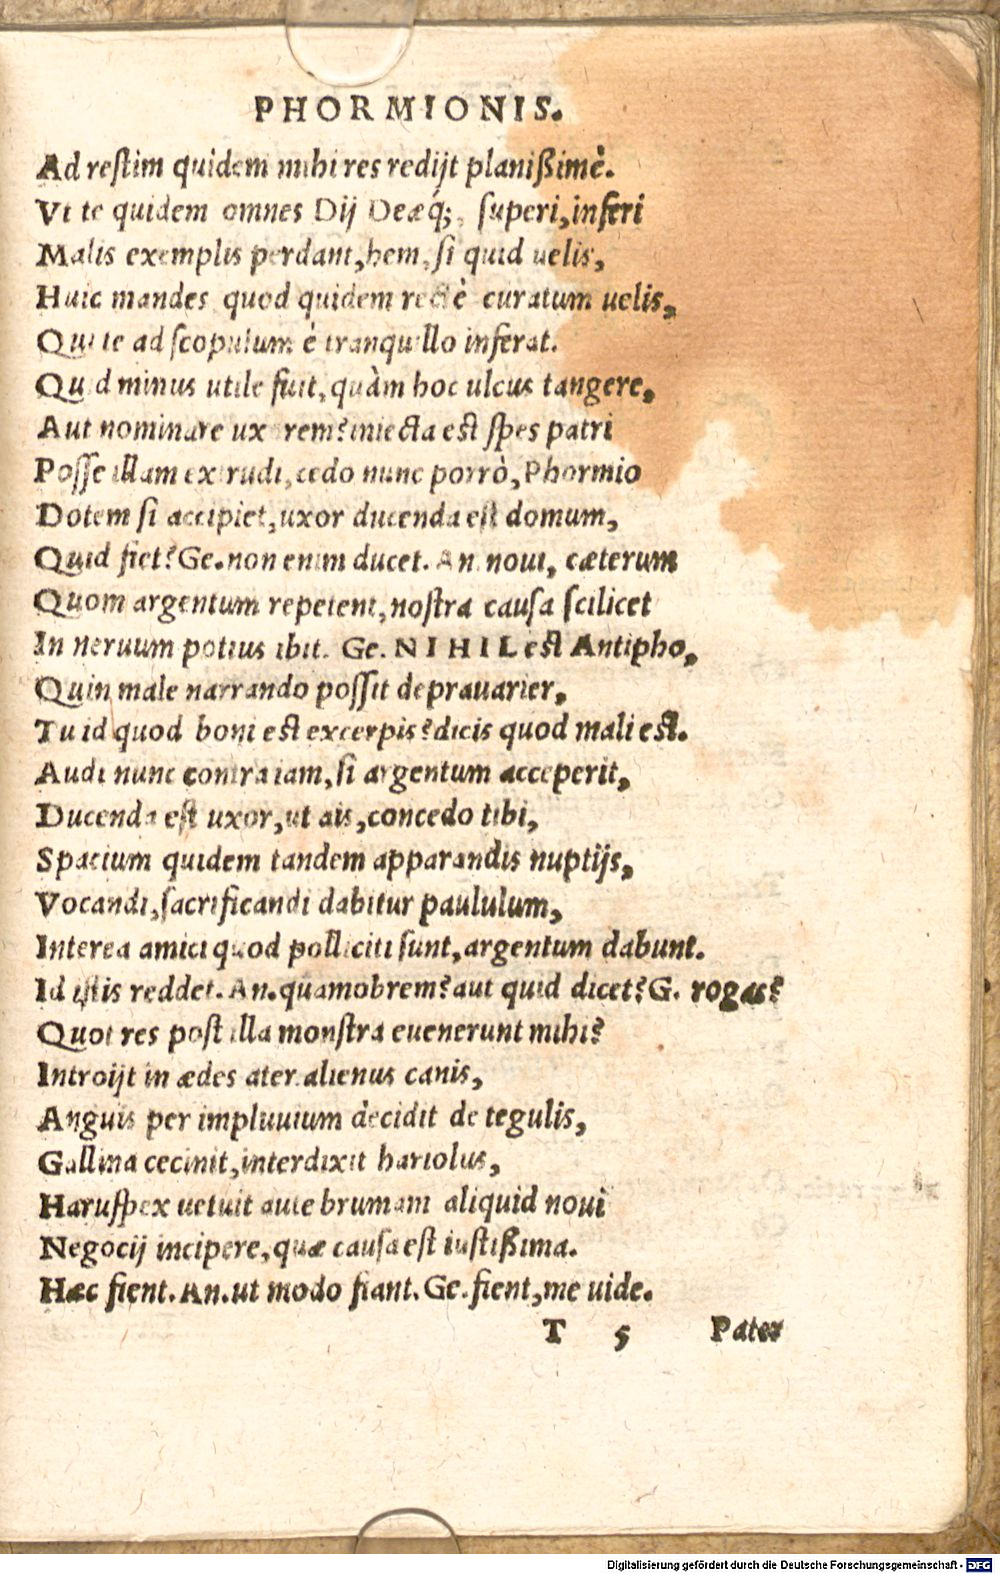 PHORMIONIS.
Ad reſtim quidem mihi res redijt planißimè.
Vt te quidem omnes Dij Deæq́;, ſuperi, inferi
Malis exemplis perdant, hem, ſi quid uelis,
Huic mandes quod quidem rectè curatum uelis,
Qui te ad ſcopulum è tranquillo inferat.
Quid minus utile fuit, quàm hoc ulcus tangere,
Aut nominare uxorem? iniecta est ſpes patri
Poſſe illam extrudi, cedo nunc porrò, Phormio
Dotem ſi accipiet, uxor ducenda eſt domum,
Quid fiet? Ge. non enim ducet. An. noui, cæterum
Quom argentum repetent, noſtra cauſa ſcilicet
In neruum potius ibit. Ge. NIHIL eſt Antipho,
Quin male narrando poſſit deprauarier,
Tu id quod boni eſt excerpis? dicis quod mali eſt.
Audi nunc contra iam, ſi argentum acceperit,
Ducenda eſt uxor, ut ais, concedo tibi,
Spatium quidem tandem apparandis nuptijs,
Vocandi, ſacrificandi dabitur paululum,
Interea amici quod polliciti ſunt, argentum dabunt.
Id iſtis reddet. An. quamobrem? aut quid dicet? G. rogas?
Quot res poſt illa monſtra euenerunt mihi?
Introijt in ædes ater alienus canis,
Anguis per impluuium decidit de tegulis,
Gallina cecinit, interdixit hariolus,
Haruſpex uetuit ante brumam aliquid noui
Negocij incipere, quæ cauſa eſt iuſtißima.
Hæc fient. An. ut modo fiant. Ge. fient, me uide.
T 5 Pater
Digitalisierung gefördert durch die Deutsche Forschungsgemeinschaft - DFG